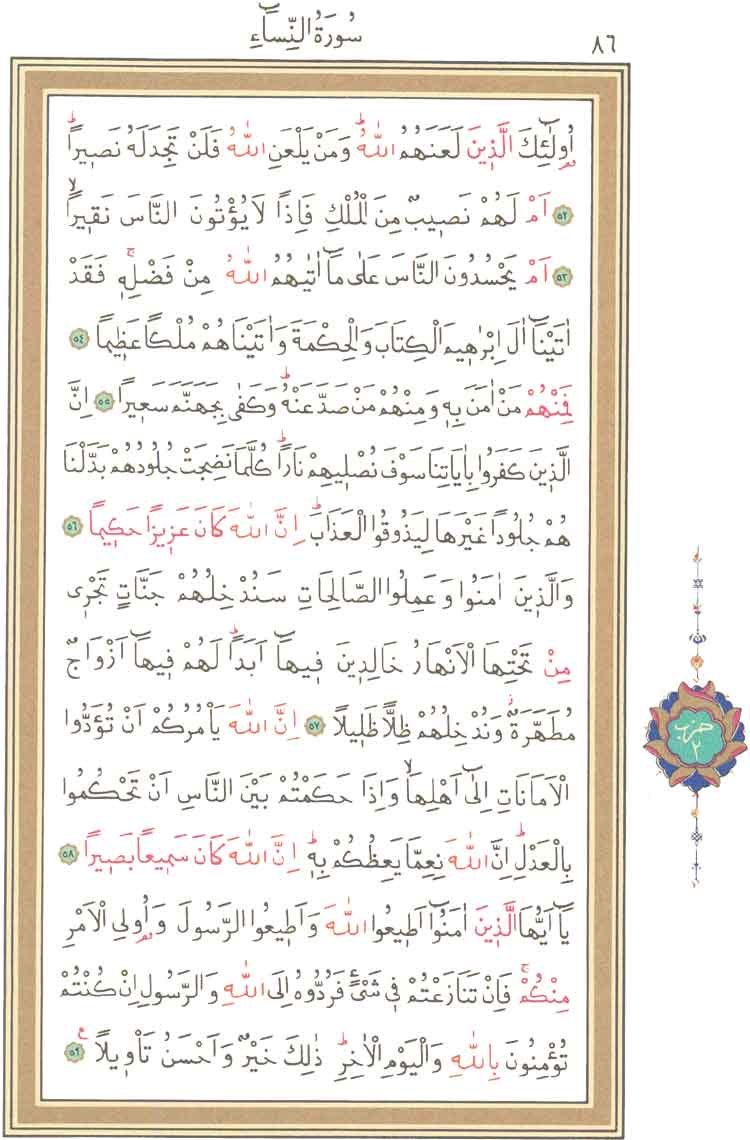 سُورَةُ النِّسَٓاءِ
٨٦
اُو۬لٰٓئِكَ الَّذ۪ينَ لَعَنَهُمُ اللّٰهُۜ وَمَنْ يَلْعَنِ اللّٰهُ فَلَنْ تَجِدَ لَهُ نَص۪يراًۜ
﴿٥٢﴾ اَمْ لَهُمْ نَص۪يبٌ مِنَ الْمُلْكِ فَاِذاً لَا يُؤْتُونَ النَّاسَ نَق۪يراًۙ
﴿٥٣﴾ اَمْ يَحْسُدُونَ النَّاسَ عَلٰى مَٓا اٰتٰيهُمُ اللّٰهُ مِنْ فَضْلِه۪ۚ فَقَدْ
اٰتَيْنَٓا اٰلَ اِبْرٰه۪يمَ الْكِتَابَ وَالْحِكْمَةَ وَاٰتَيْنَاهُمْ مُلْكاً عَظ۪يماً ﴿٥٤﴾
فَمِنْهُمْ مَنْ اٰمَنَ بِه۪ وَمِنْهُمْ مَنْ صَدَّ عَنْهُۜ وَكَفٰى بِجَهَنَّمَ سَع۪يراً ﴿٥٥﴾ اِنَّ
الَّذ۪ينَ كَفَرُوا بِاٰيَاتِنَا سَوْفَ نُصْل۪يهِمْ نَاراًۜ كُلَّمَا نَضِجَتْ جُلُودُهُمْ بَدَّلْنَا
هُمْ جُلُوداً غَيْرَهَا لِيَذُوقُوا الْعَذَابَۜ اِنَّ اللّٰهَ كَانَ عَز۪يزاً حَك۪يماً ﴿٥٦﴾
وَالَّذ۪ينَ اٰمَنُوا وَعَمِلُوا الصَّالِحَاتِ سَنُدْخِلُهُمْ جَنَّاتٍ تَجْر۪ي
مِنْ تَحْتِهَا الْاَنْهَارُ خَالِد۪ينَ ف۪يهَٓا اَبَداًۜ لَهُمْ ف۪يهَٓا اَزْوَاجٌ
مُطَهَّرَةٌۘ وَنُدْخِلُهُمْ ظِلاًّ ظَل۪يلاً ﴿٥٧﴾ اِنَّ اللّٰهَ يَأْمُرُكُمْ اَنْ تُؤَدُّوا
الْاَمَانَاتِ اِلٰٓى اَهْلِهَاۙ وَاِذَا حَكَمْتُمْ بَيْنَ النَّاسِ اَنْ تَحْكُمُوا
بِالْعَدْلِۜ اِنَّ اللّٰهَ نِعِمَّا يَعِظُكُمْ بِه۪ۜ اِنَّ اللّٰهَ كَانَ سَم۪يعاً بَص۪يراً ﴿٥٨﴾
يَٓا اَيُّهَا الَّذ۪ينَ اٰمَنُٓوا اَط۪يعُوا اللّٰهَ وَاَط۪يعُوا الرَّسُولَ وَاُو۬لِي الْاَمْرِ
مِنْكُمْۚ فَاِنْ تَنَازَعْتُمْ ف۪ي شَيْءٍ فَرُدُّوهُ اِلَى اللّٰهِ وَالرَّسُولِ اِنْ كُنْتُمْ
تُؤْمِنُونَ بِاللّٰهِ وَالْيَوْمِ الْاٰخِرِۜ ذٰلِكَ خَيْرٌ وَاَحْسَنُ تَأْو۪يلاً ع ﴿٥٩﴾
حزب
٢